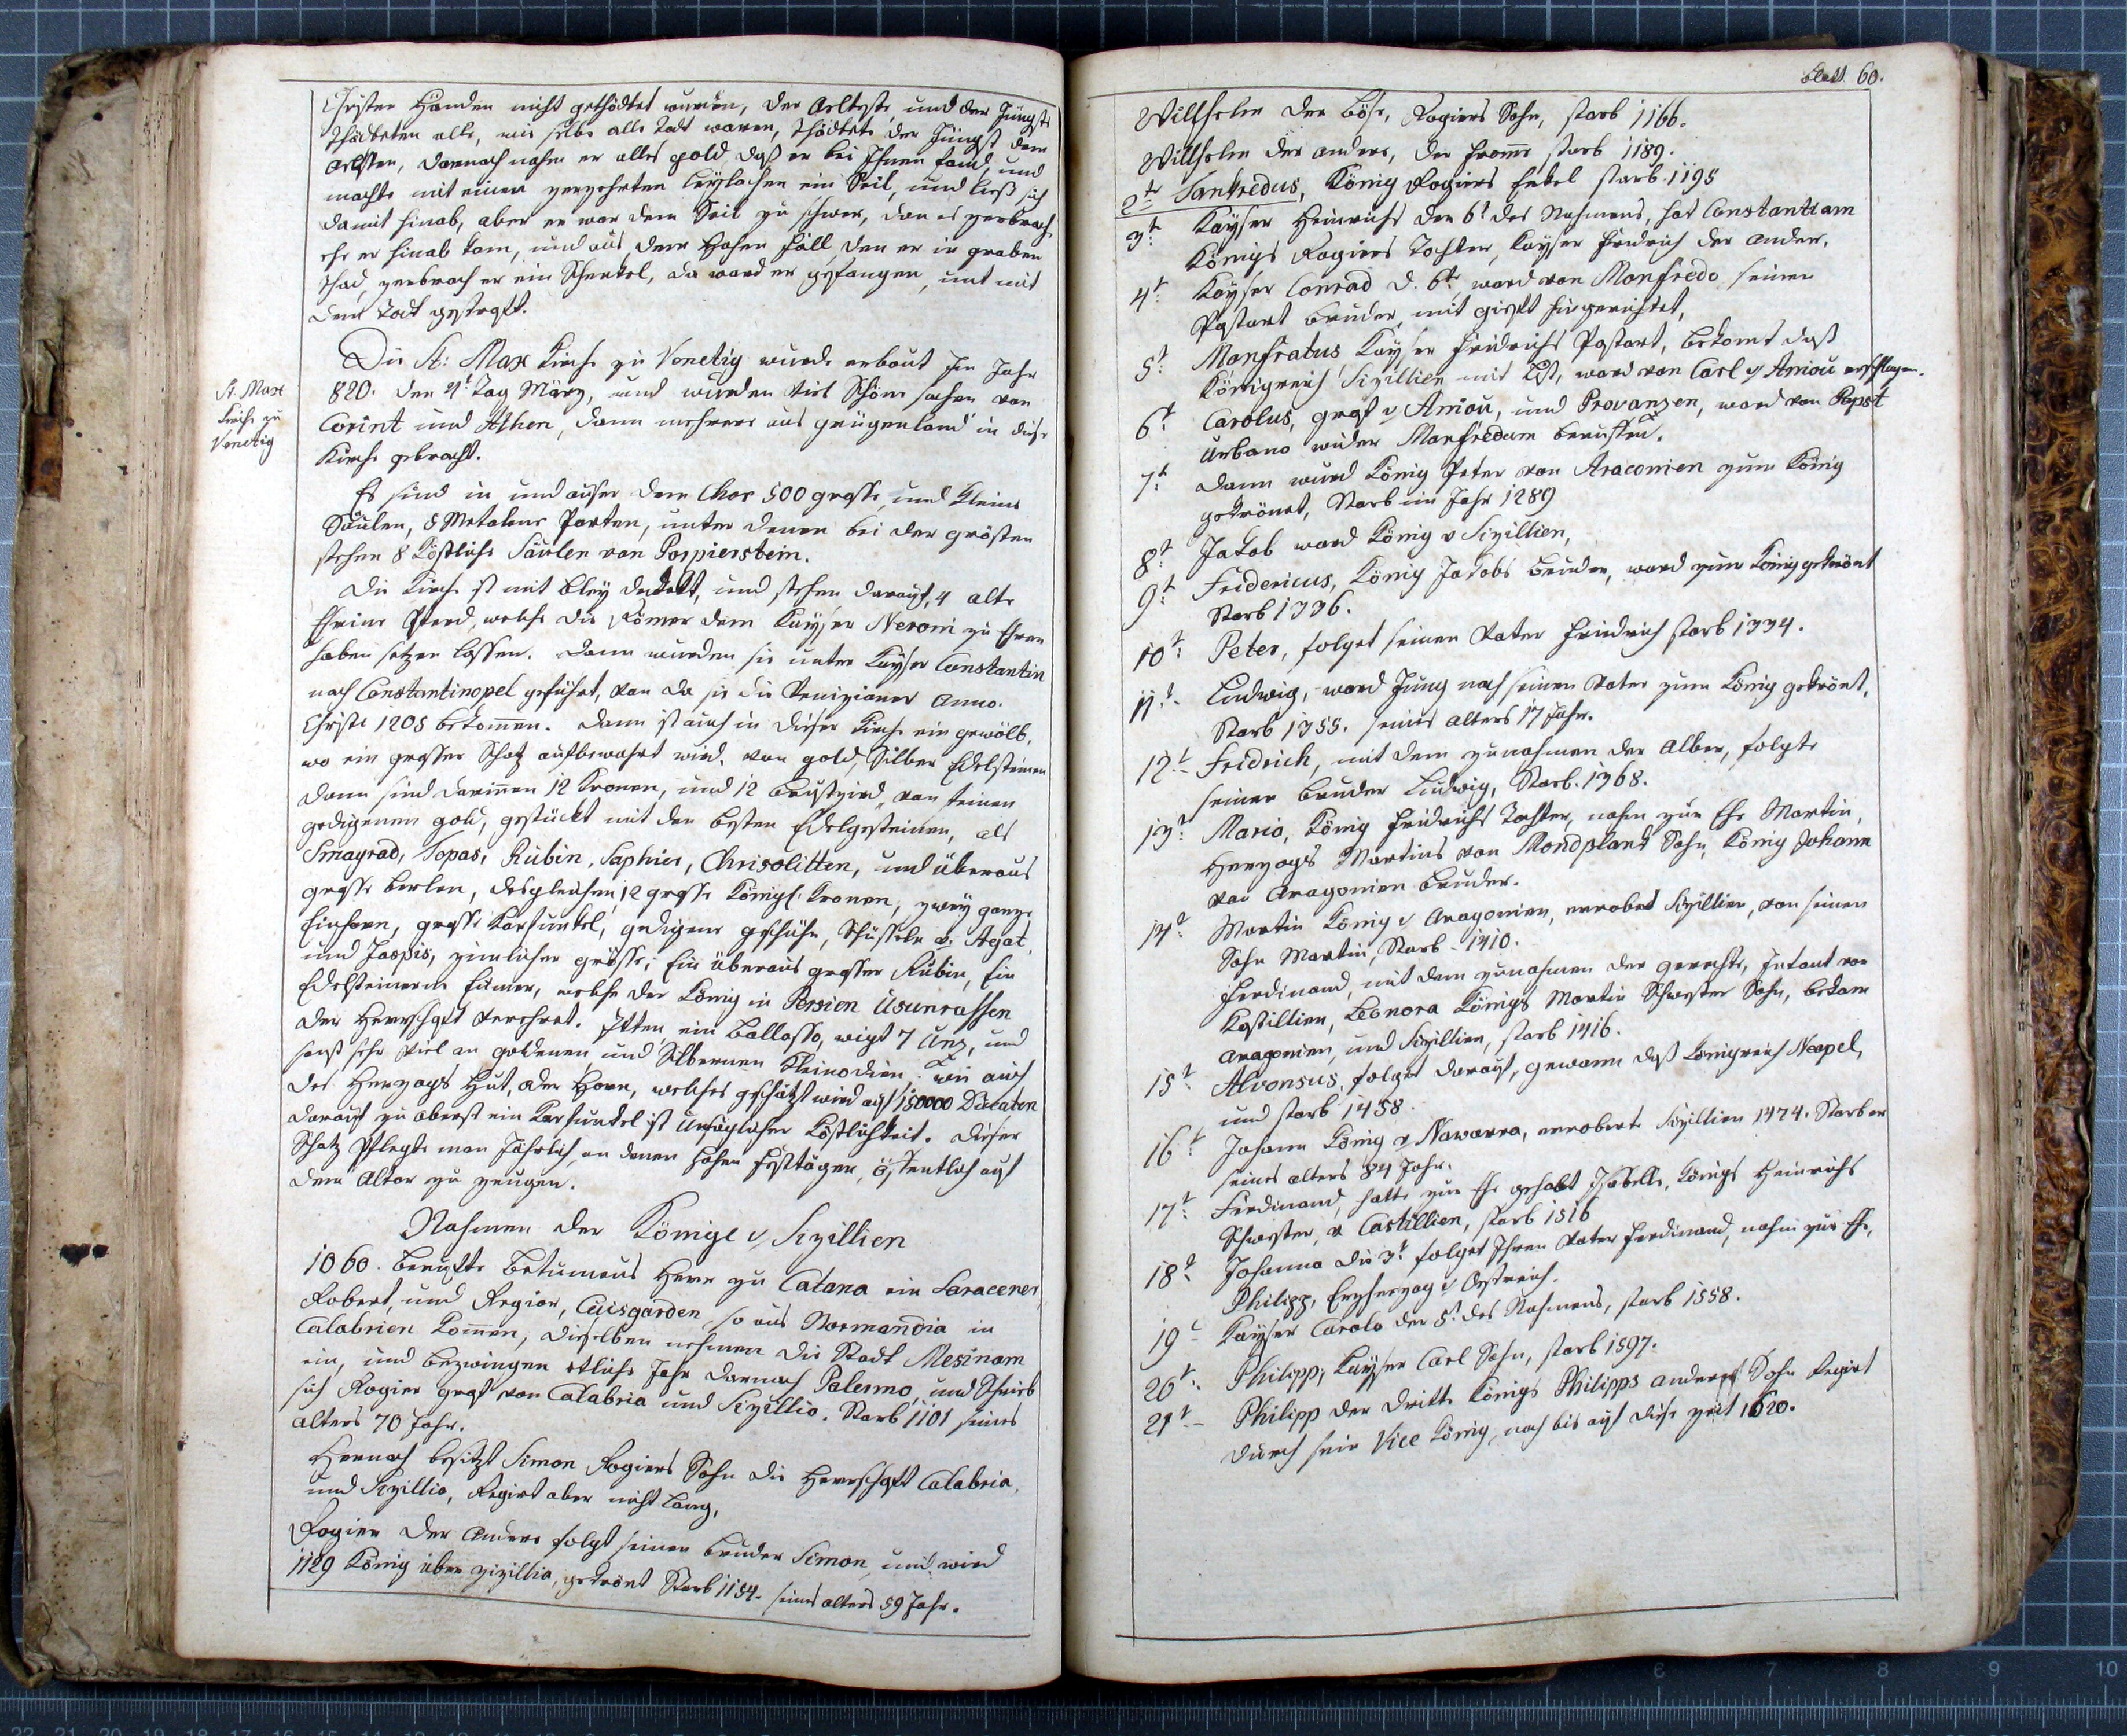 Christen Handen nicht gethödtet wurden, der Aelteste, und der Jüngste
thödteten alle, wie selbe alle Todt waren, thödtete der Jüngst dem
Aelsten, darnach nahm er alles gold, daß er bei Ihnen fand, und
machte mit einen zerzehrten Leylachen ein Seil, und ließ sich
damit hinab, aber er war dem Seil zu schwer, dan es zerbrach
ehe er hinab kam, und aus dem Hohen fall, den er in graben
thad, zerbrach er ein Schenkel, da ward er gefangen, und mit
dem Todt gestraft.
St. Max
Kirche zu
Venetig
Die St: Max Kirche zu Venetig wurde erbaut Im Jahr
820. den 4t Tag März, und wurden viel Schöne sachen von
Corint und Athen, dann mehrere aus grügenland in diese
Kirche gebracht.
Es sind in und auser dem Chor 500 grosse, und kleine
Säulen, 8 Metalene Porten, unter denen bei der grösten
stehen 8 köstliche Säulen von Porpierstein.
Die Kirche ist mit Bley dekelt, und stehen darauf, 4 alte
Eheine Pferd, welche die Römer dem Kayser Neroni zu Ehren
haben setzen lassen. Dann wurden sie unter Kayser Constantin
nach Constantinopel geführt, von da sie die Venizianer Anno.
Christi 1205 bekommen. Dann ist auch in dieser Kirche ein gewölb,
wo ein grosser Schatz aufbewahrt wird, von gold, Silber Edelsteinen
Dann sind darinnen 12 Kronen, und 12 Brustzird, von feinen
gedigenem gold, gestückt mit den besten Edelgesteinen, als
Smagrad, Topas, Rubin, Saphier, Chrisolitten, und überaus
grosse Berlen, desgleichen 12 grosse Königl: Kronen, zwey ganze
Einhorn, grosse Karfunkel, gedigene geschühr, Schüsseln v: Agat,
und Jaspis, zimlicher grösse; Ein überaus grosser Rubin, Ein
Edelsteinerne Eimer, welche der König in Persien Usunrassen
der Herrschaft verehret. Itten, ein Ballasso, wigt 7 Unz, und
sonst sehr viel an goldenen und Silbernen Kleinodien. wie auch
des Herzogs Hut, oder Horn, welches geschätzt wird auf 150000 Ducaten
darauf zu oberst ein Karfunkel ist unsäglicher Köstlichkeit. Dieser
Schatz Pflegte man Jährlich, an denen hohen Festtägen, öffentlich auf
dem Altar zu zeugen.
Nahmen der Könige v Sizillien
1060. Berufte Betumeus Herr zu Catana ein Saracener,
Robert, und Regior, Cuisgarden, so aus Normandia in
Calabrien kommen, dieselben nehmen die Stadt Mesinam
ein, und bezwingen etliche Jahr darnach Palermo, und Schrieb
sich Rogier graf von Calabria und Sizillio. Starb 1101 seines
alters 70 Jahr.
Hernach besitzt Simon Rogiers Sohn die Herrschaft Calabria,
und Sizillio, Regirt aber nicht lang,
Rogier der Andere folgt seinen Bruder Simon, und wird
1129 König über zizillia, gekrönt Starb 1154. seines alters 59 Jahr.
Blatt 60.
Willhelm der Böse, Rogiers Sohn, starb 1166.
Willhelm der andere, der fromme starb 1189.
2te Tankredus, König Rogiers Enkel starb 1195
3t: Kayser Heinrichs den 6t des Nahmens, hat Constantiam
Königs Rogiers Tochter, Kayser Fridrich der Ander.
4t: Kayser Conrad d. 6te ward von Manfredo seinen
Pastart Bruder, mit gieft hingerichtet,
5t Manfratus Kayser Fridrichs Pastart, bekomt daß
Königreich Sizillien mit List, ward von Carl v Aniou erschlagen.
6t Carolus, graf v Aniou, und Provanzen, ward von Papst
Urbano wider Manfredum beruffen.
7t: Dann wurd König Peter von Araconien zum König
gekrönet, Starb im Jahr 1289
8t: Jakob ward König v Sizillien,
9t: Fridericus, König Jakobs Bruder, ward zum König gekrönt
Starb 1336.
10t: Peter, folget seinen Vater Friedrich starb 1334.
11t Ludwig, ward Jung nach seinen Vater zum König gekrönt,
Starb 1355. seines alters 17 Jahr.
12t Fridrich, mit dem zunahmen der Alber, folgte
seinen Bruder Ludwig, Starb. 1368.
13t Mario, König Fridrichs Tochter, nahm zur Ehe Martin,
Herzogs Martins von Mondplank Sohn, König Johann
von Aragonien Bruder.
14t Martin König v Aragonien, errobert Sizillien, von seinen
Sohn Martin, Starb 1410.
Ferdinand, mit dem zunahmen der gerechte, Infant von
Kastillien, Leonora Königs Martin Schwester Sohn, bekam
Aragonien, und Sizillien, starb 1416.
15t Alvonsus, folget darauf, gewann daß Königreich Neapel,
und starb 1458.
16t Johann König v Nawarra, erroberte Sizillien 1474. Starb er
seines alters 84 Jahr.
17t: Ferdinand, hatte zur Ehe gehabt Isabella, Königs Heinrichs
Schwester, v Castillien, starb 1516
18t Johanna die 3t folget Ihren Vater Ferdinand, nahm zur Ehe,
Philipp, Erzherzog v Oestreich.
19t Kayser Carolo der 5t des Nahmens, starb 1558.
20t: Philipp, Kayser Carl Sohn, starb 1597.
21t Philipp der dritte Königs Philipps anderst Sohn Regirt
durch sein Vice König, noch bis auf diese zeit 1620.